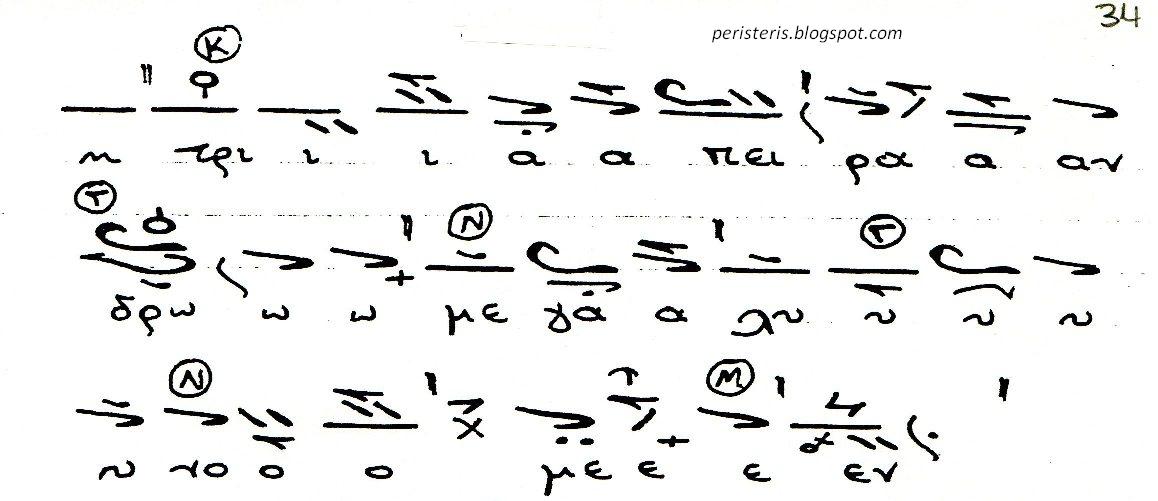 34
peristeris.blogspot.com
Κ
η τρι ι ι α α πει ρα α αν
Γ Ν Γ
δρω ω ω με γα α λυ υ υ υ
Ν Μ
υ νο ο ο με ε ε εν